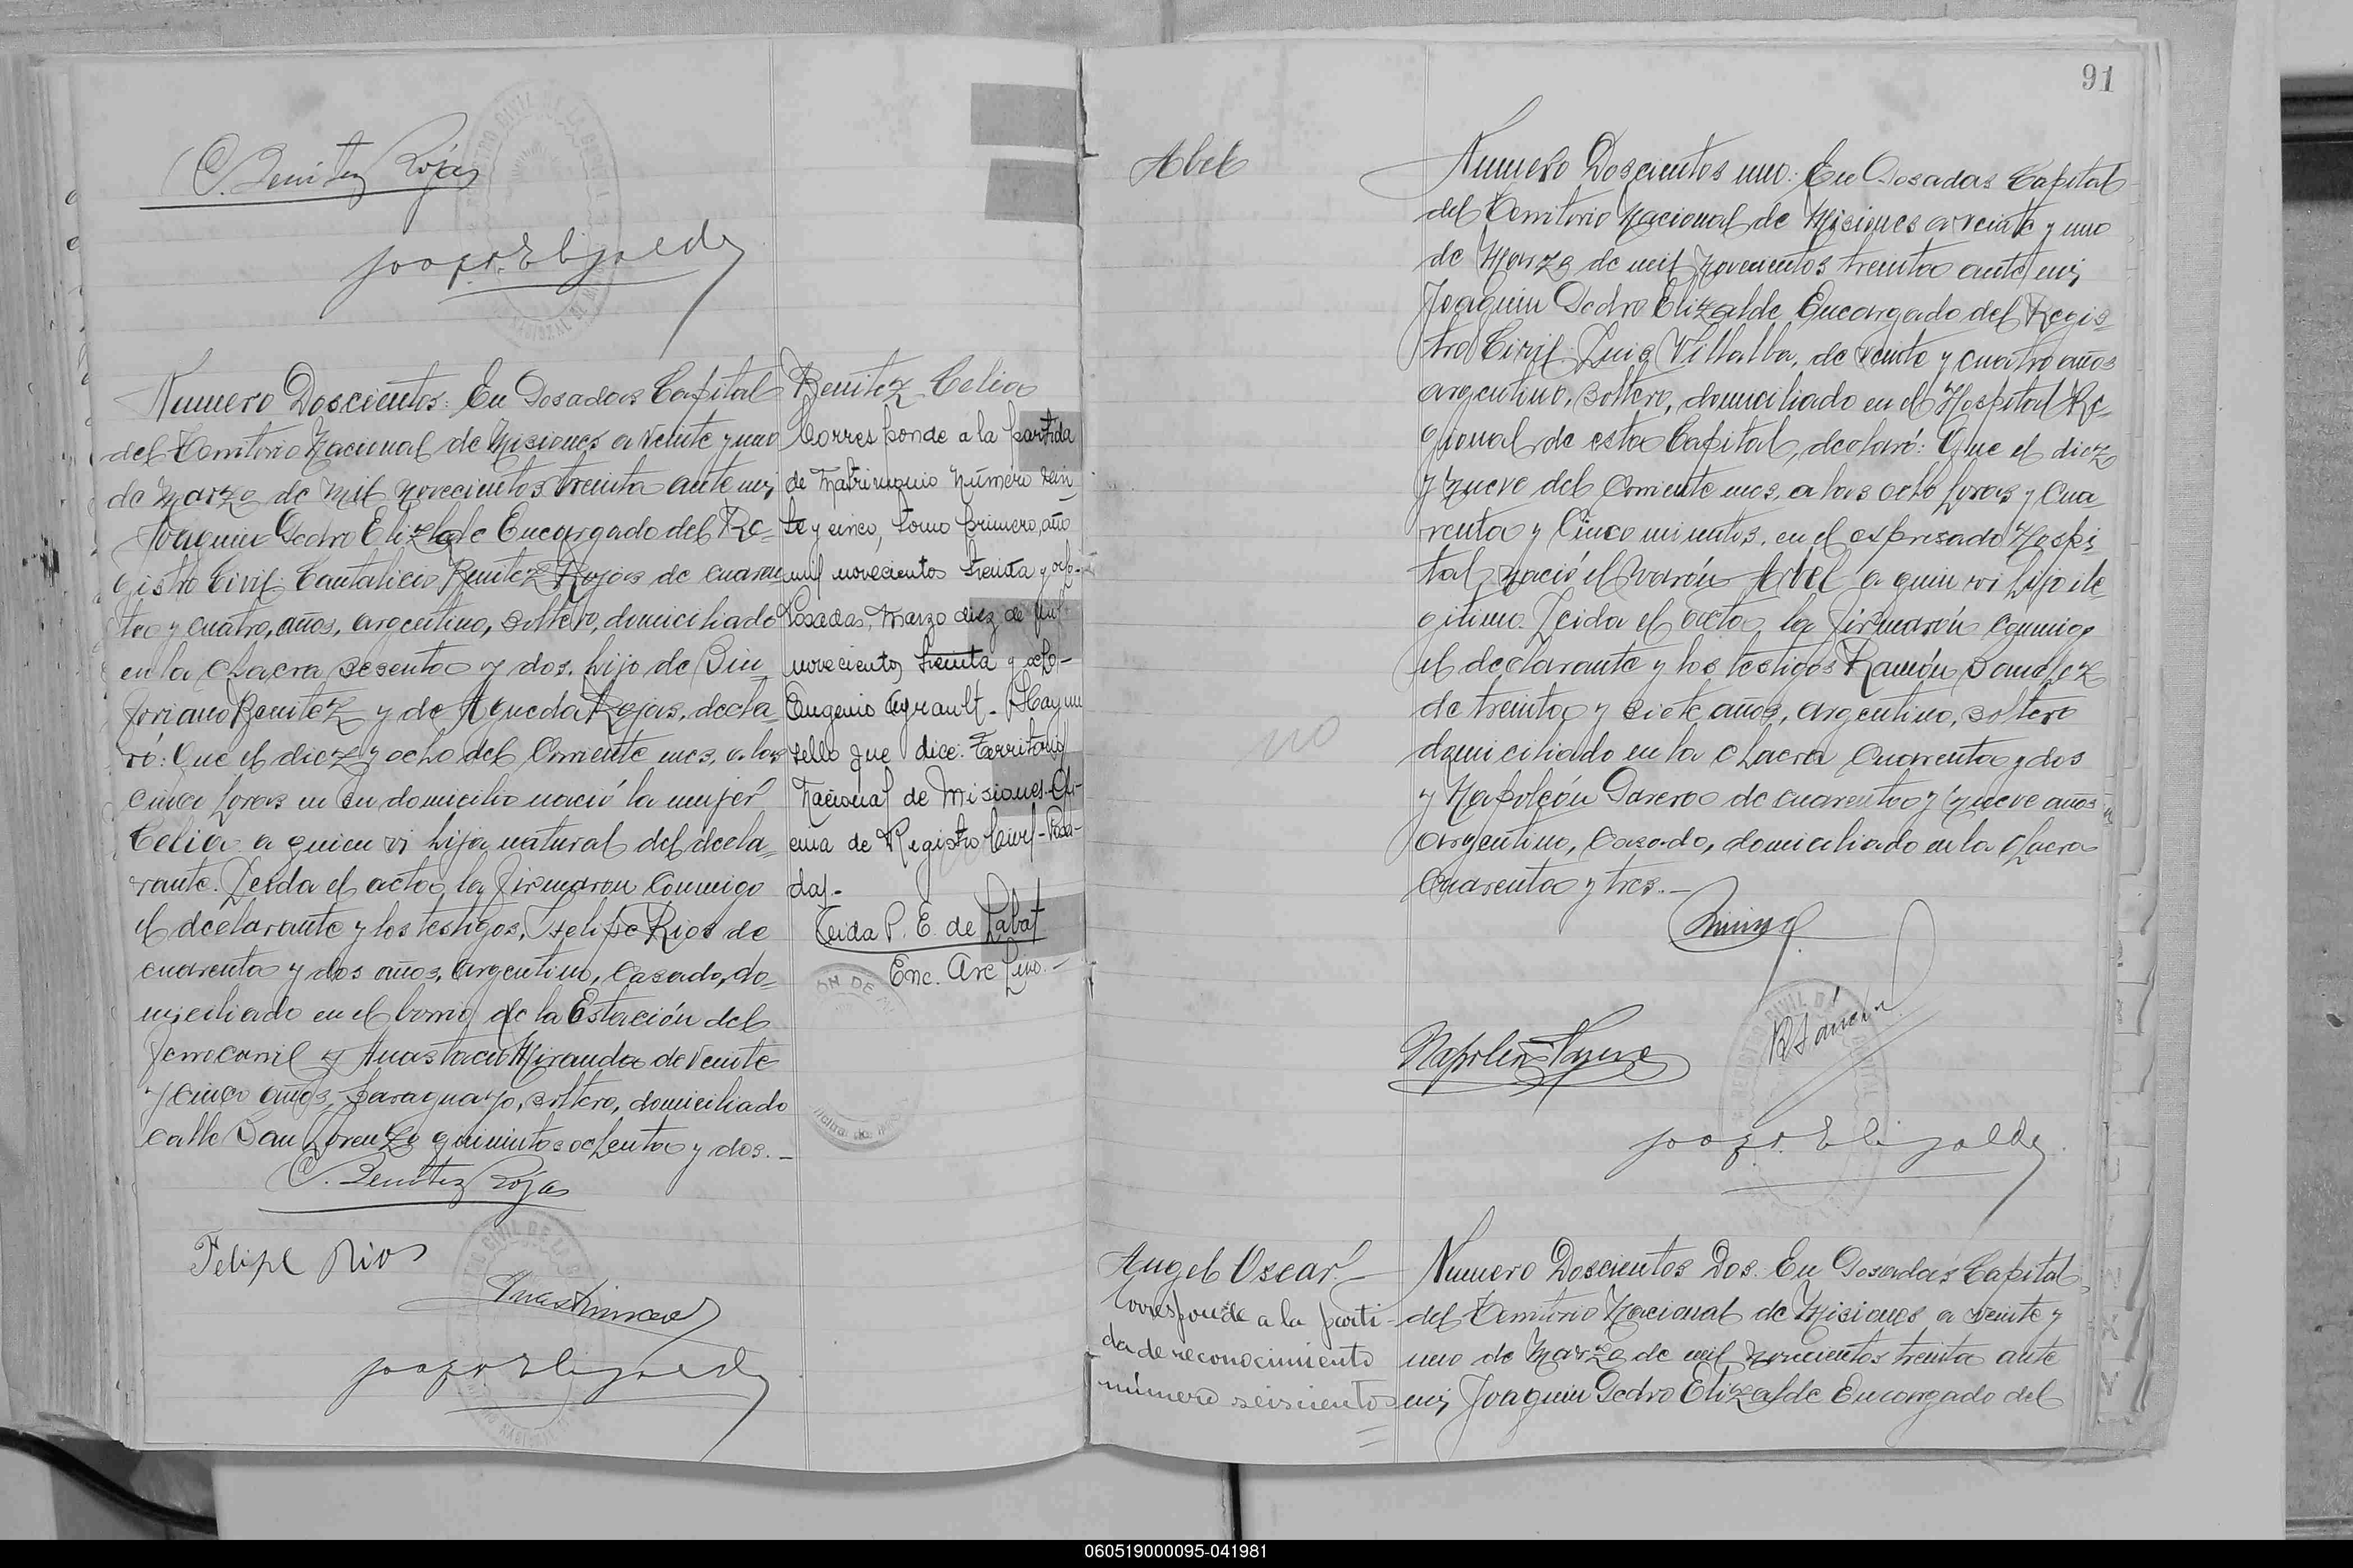 C. Benitez Rojas
Joaq. P. Elizalde
Numero Doscientos: En Posadas Capital
del Territorio Nacional de Misiones a veinte y uno
de Marzo de mil novecientos treinta ante mi,
Joaquin Pedro Elizalde Encargado del Re=
gistro Civil: Cantalicio Benitez Rojas de cuaren
ta y cuatro, años, argentino, soltero, domiciliado
en la chacra sesenta y dos, hijo de Sin=
foriano Benitez y de Agueda Rojas, decla=
ró: Que el diez y ocho del corriente mes, a las
cinco horas en su domicilio nació la mujer
Celia a quien vi hija natural del decla=
rante. Leida el acta, la firmaron conmigo
el declarante y los testigos, Felipe Rios de
cuarenta y dos años, argentino, casado, do=
miciliado en el barrio de la Estación del
ferrocarril y Anastacio Miranda de veinte
y cinco años, paraguayo, soltero, domiciliado
calle San Lorenzo quinientos ochenta y dos.—
C. Benitez Rojas
Felipe Rios
Joaq. P. Elizalde
Benitez Celia
Corresponde a la partida
de Matrimonio número vein
te y cinco, tomo primero, año
mil novecientos treinta y ocho.
Posadas, Marzo diez de mil
novecientos treinta y ocho—
Eugenio . Hay un
sello que dice: Territorio
Nacional de Misiones-Ofi-
cina de Registro Civil-Posa-
das.-
Leida P. E. de Labat
Enc. Archivo.—
91
Abel
no
Numero Doscientos uno: En Posadas Capital
del Territorio Nacional de Misiones a veinte y uno
de Marzo de mil novecientos treinta ante mi,
Joaquin Pedro Elizalde Encargado del Regis=
tro Civil: Luis Villalba, de veinte y cuatro años
argentino, soltero, domiciliado en el Hospital Re=
gional de esta Capital, declaró: Que el diez
y nueve del corriente mes, a las ocho horas y cua
renta y cinco minutos, en el expresado Hospi
tal, nació el varón Abel a quien vi hijo ile
gitimo. Leida el acta, la firmarón conmigo
el declarante y los testigos Ramón Sanchez
de treinta y siete años, argentino, soltero
domiciliado en la chacra cuarenta y dos
y Napoleón de cuarenta y nueve años
argentino, casado, domiciliado en la chacra
cuarenta y tres.—
Joaq. P. Elizalde
Angel Oscar.—
Corresponde a la parti-
da de reconocimiento
número seiscientos
Numero Doscientos Dos: En Posadas Capital
del Territorio Nacional de Misiones a veinte y
uno de Marzo de mil novecientos treinta ante
mi, Joaquin Pedro Elizalde Encargado del
060519000095-041981